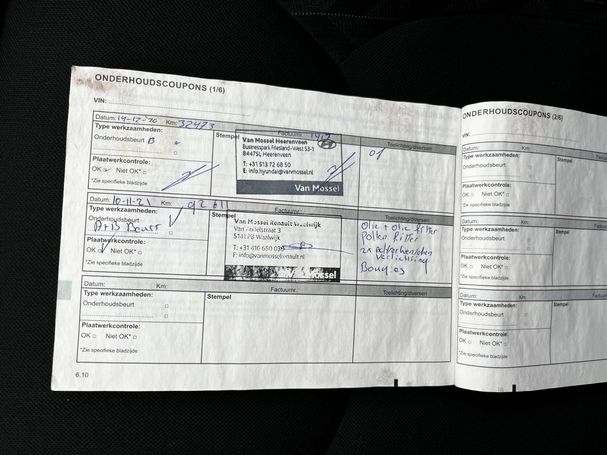 ONDERHOUDSCOUPONS (1/6)
VIN:
Datum: 14-12-20 Km: 32473 Factuurnr.:
Type werkzaamheden: Stempel Toelichting/diversen
Onderhoudsbeurt B
Van Mossel Heerenveen
Businesspark Friesland-West 53-1
8447SL Heerenveen
T: +31 513 72 68 50
E: info.hyundai@vanmossel.nl
Van Mossel
01
Plaatwerkcontrole:
OK Niet OK*
*Zie specifieke bladzijde
Datum: 10-11-21 Km: 92611 Factuurnr.:
Type werkzaamheden: Stempel Toelichting/diversen
Onderhoudsbeurt
A+B Beurt
Van Mossel Renault Waalwijk
5141 Waalwijk
T: +31 416 650 03
E: info@vanmosselrenault.nl
ossel
Olie + olie filter
Pollen filter
Bougies
Plaatwerkcontrole:
OK Niet OK*
*Zie specifieke bladzijde
Datum: Km: Factuurnr.:
Type werkzaamheden: Stempel Toelichting/diversen
Onderhoudsbeurt
Plaatwerkcontrole:
OK Niet OK*
*Zie specifieke bladzijde
6.10
ONDERHOUDSCOUPONS (2/6)
VIN:
Datum:
Type werkzaamheden:
Onderhoudsbeurt
Plaatwerkcontrole:
OK Niet OK*
*Zie specifieke bladzijde
Datum:
Type werkzaamheden:
Onderhoudsbeurt
Plaatwerkcontrole:
OK Niet OK*
*Zie specifieke bladzijde
Datum:
Type werkzaamheden:
Onderhoudsbeurt
Plaatwerkcontrole:
OK Niet OK*
*Zie specifieke bladzijde